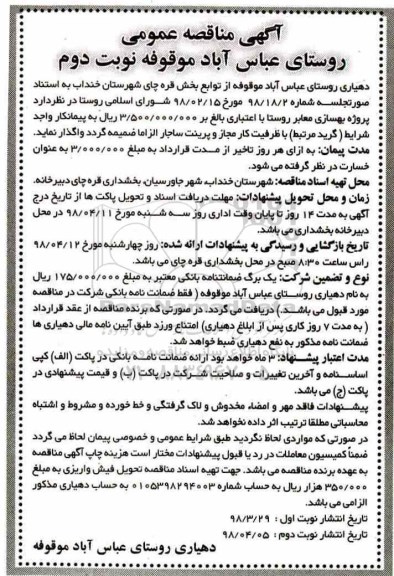 آگهی مناقصه عمومی
روستای عباس آباد موقوفه نوبت دوم
دهیاری روستای عباس آباد موقوفه از توابع بخش قره چای شهرستان خنداب به استناد
صورتجلسه شماره ۹۸/۱۸/۲ مورخ ۹۸/۰۲/۱۵ شورای اسلامی روستا در نظردارد
پروژه بهسازی معابر روستا با اعتباری بالغ بر ۳/۵۰۰/۰۰۰/۰۰۰ ریال به پیمانکار واجد
شرایط ( گرید مرتبط) با ظرفیت کار مجاز و پرینت ساجار الزاما ضمیمه گردد واگذار نماید.
مدت پیمان: به ازای هر روز تاخیر از مدت قرارداد به مبلغ ۳/۰۰۰/۰۰۰ به عنوان
خسارت در نظر گرفته می شود.
محل تهیه اسناد مناقصه: شهرستان خنداب، شهر جاورسیان، بخشداری قره چای دبیرخانه.
زمان و محل تحویل پیشنهادات: مهلت دریافت اسناد و تحویل پاکت ها از تاریخ درج
آگهی به مدت ۱۴ روز تا پایان وقت اداری روز سه شنبه مورخ ۹۸/۰۴/۱۱ در محل
دبیرخانه بخشداری می باشد.
تاریخ بازگشایی و رسیدگی به پیشنهادات ارائه شده: روز چهارشنبه مورخ ۹۸/۰۴/۱۲
راس ساعت ۸:۳۰ صبح در محل بخشداری قره چای می باشد.
نوع و تضمین شرکت: یک برگ ضمانتنامه بانکی معتبر به مبلغ ۱۷۵/۰۰۰/۰۰۰ ریال
به نام دهیاری روستای عباس آباد موقوفه ( فقط ضمانت نامه بانکی شرکت در مناقصه
مورد قبول می باشد ) دریافت می گردد. در صورتی که برنده مناقصه از عقد قرارداد
( به مدت ۷ روز کاری پس از ابلاغ دهیاری) امتناع ورزد طبق آیین نامه مالی دهیاری ها
ضمانت نامه مذکور به نفع دهیاری ضبط خواهد شد.
مدت اعتبار پیشنهاد: ۳ ماه خواهد بود ارائه ضمانت نامه بانکی در پاکت (الف) کپی
اساسنامه و آخرین تغییرات و صلاحیت شرکت در پاکت (ب) و قیمت پیشنهادی در
پاکت (ج) می باشد.
پیشنهادات فاقد مهر و امضاء مخدوش و لاک گرفتگی و خط خورده و مشروط و اشتباه
محاسباتی مطلقا ترتیب اثر داده نخواهد شد.
در صورتی که مواردی لحاظ نگردید طبق شرایط عمومی و خصوصی پیمان لحاظ می گردد
ضمنا کمیسیون معاملات در رد یا قبول پیشنهادات مختار است هزینه چاپ آگهی مناقصه
به عهده برنده مناقصه می باشد. جهت تهیه اسناد مناقصه تحویل فیش واریزی به مبلغ
۳۵۰/۰۰۰ هزار ریال به حساب شماره ۰۱۰۵۳۹۸۲۹۴۰۰۳ به حساب دهیاری مذکور
الزامی می باشد.
تاریخ انتشار نوبت اول : ۹۸/۳/۲۹
تاریخ انتشار نوبت دوم : ۹۸/۰۴/۰۵
دهیاری روستای عباس آباد موقوفه